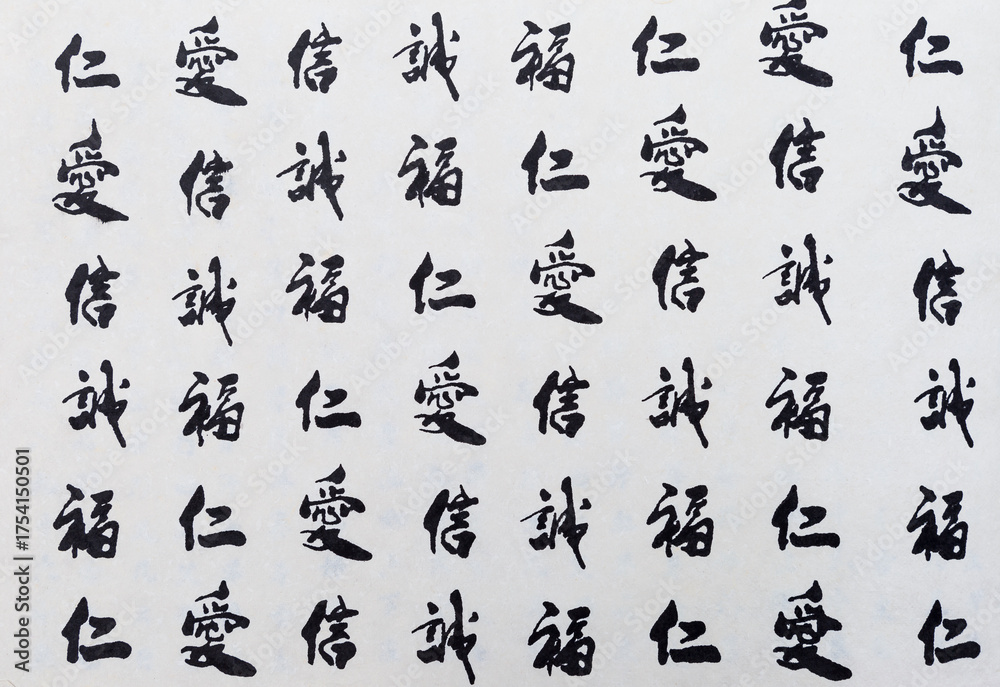 仁愛信誠福仁愛仁
愛信誠福仁愛信愛
信誠福仁愛信誠信
誠福仁愛信誠福誠
福仁愛信誠福仁福
仁愛信誠福仁愛仁
Adobe Stock | #1754150501